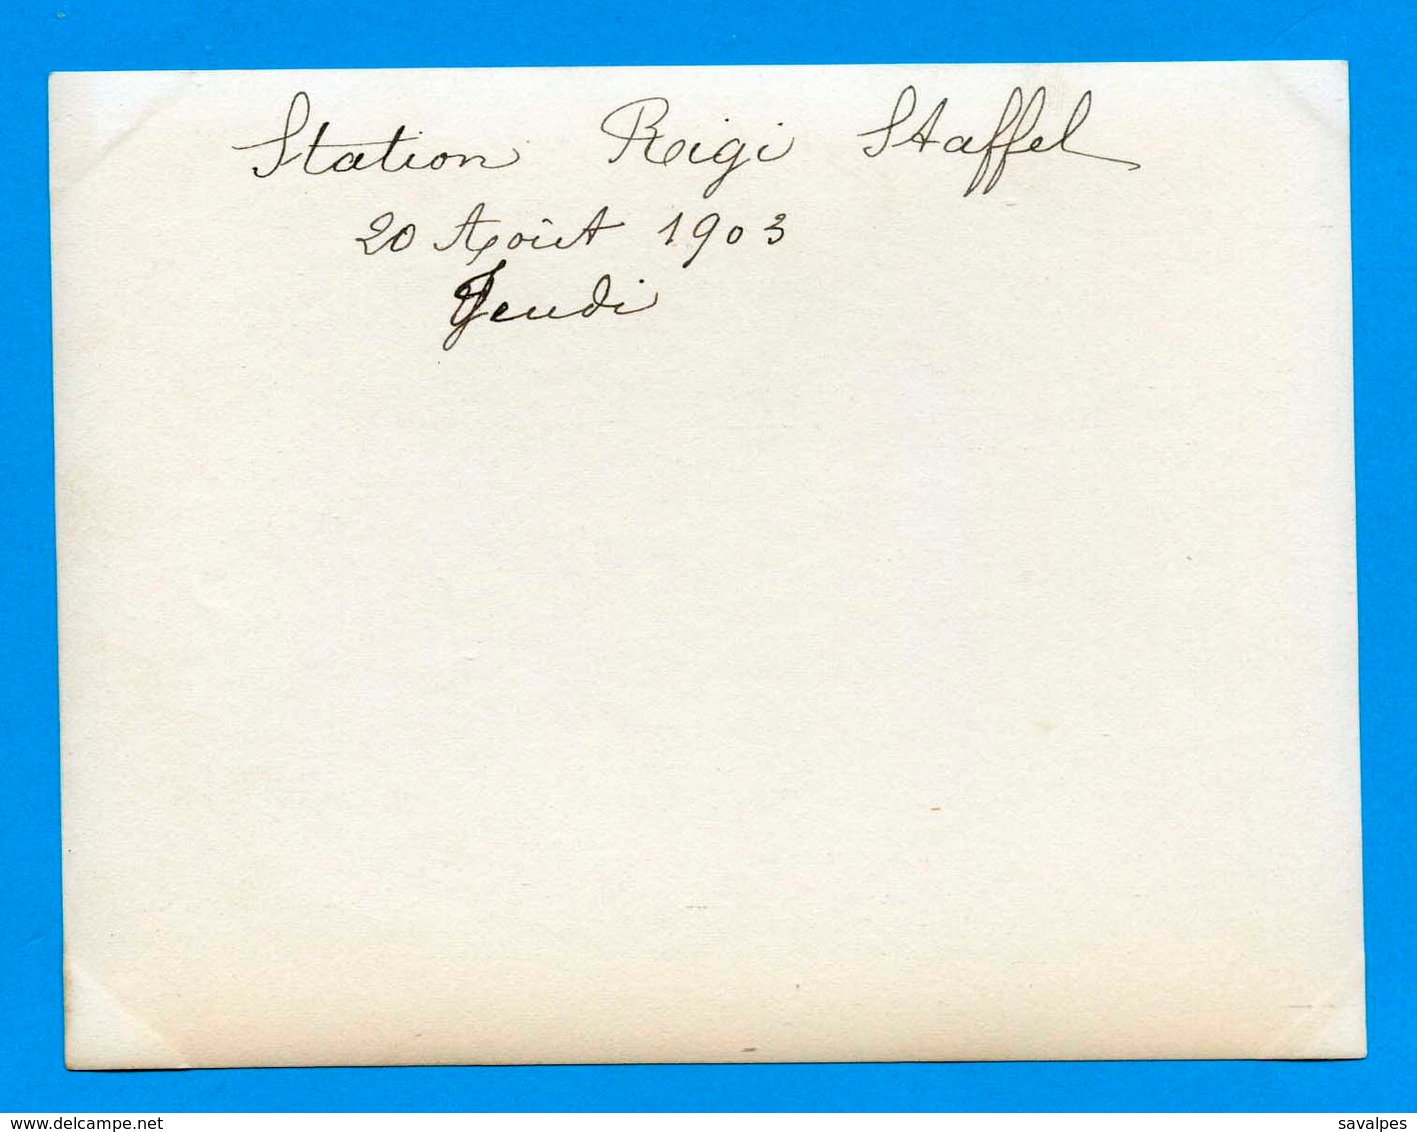 Station Rigi Staffel
20 Août 1903
Jeudi
delcampe.net
savalpes